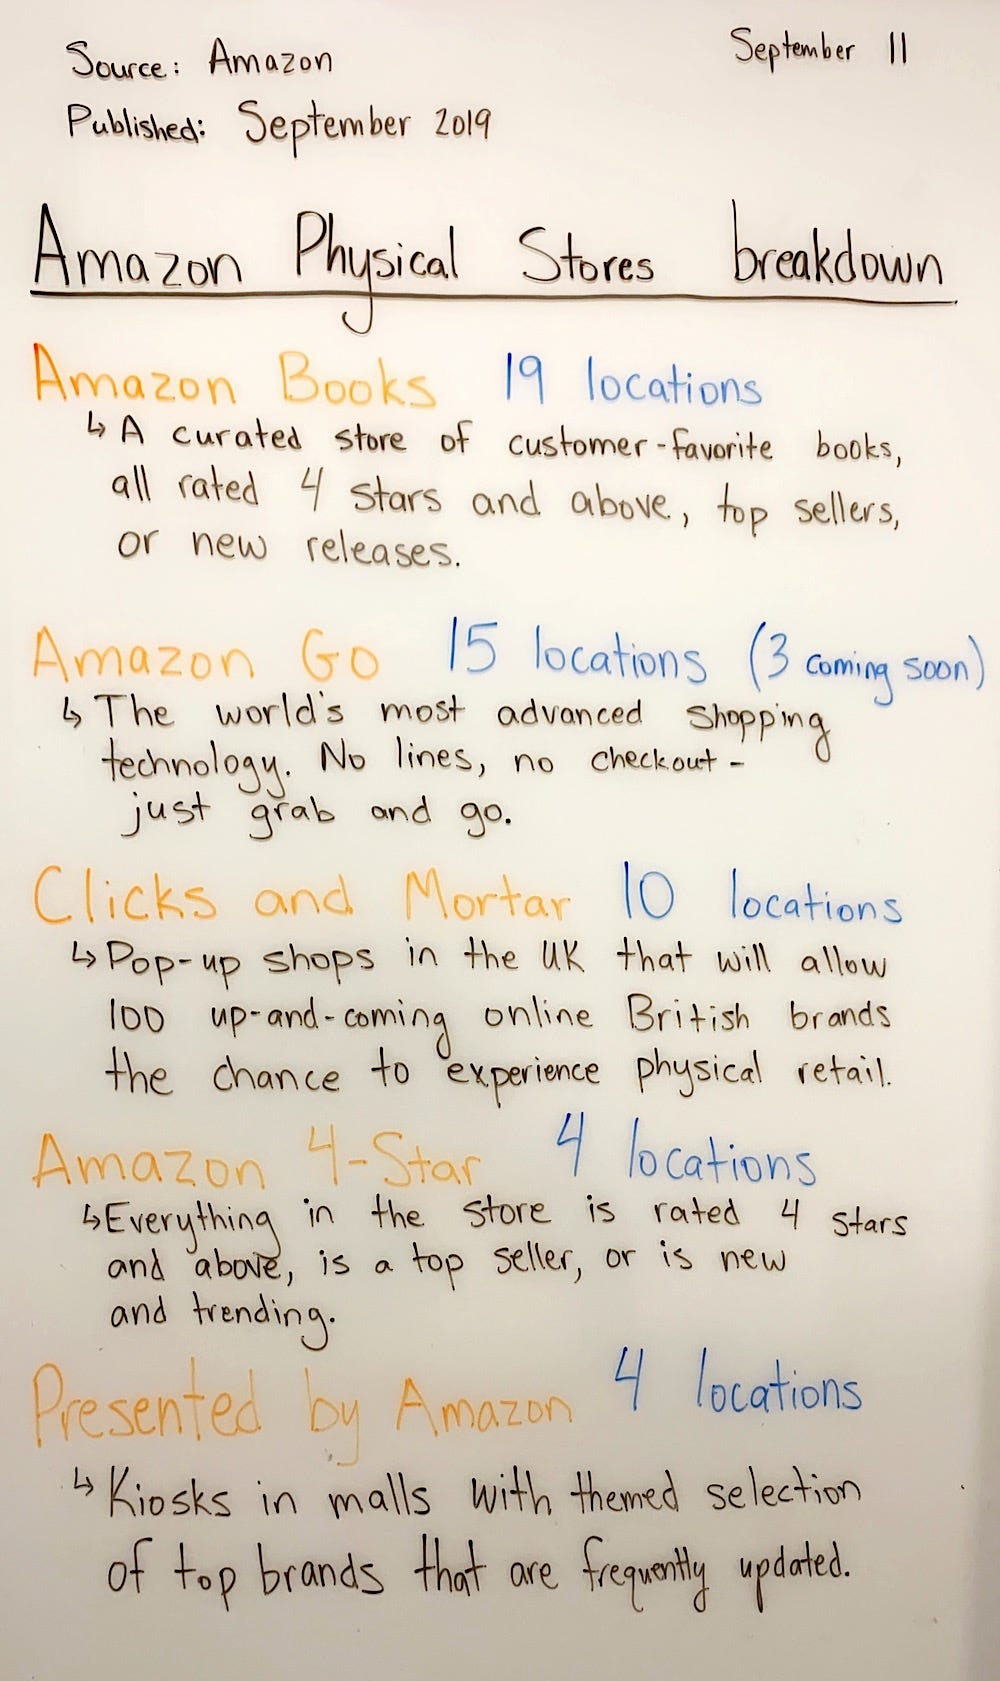 September 11
Source: Amazon
Published: September 2019
Amazon Physical Stores breakdown
Amazon Books 19 locations
↳ A curated store of customer-favorite books,
all rated 4 stars and above, top sellers,
or new releases.
Amazon Go 15 locations (3 coming soon)
↳ The world's most advanced shopping
technology. No lines, no checkout -
just grab and go.
Clicks and Mortar 10 locations
↳ Pop-up shops in the UK that will allow
100 up-and-coming online British brands
the chance to experience physical retail.
Amazon 4-Star 4 locations
↳ Everything in the store is rated 4 stars
and above, is a top seller, or is new
and trending.
Presented by Amazon 4 locations
↳ Kiosks in malls with themed selection
of top brands that are frequently updated.